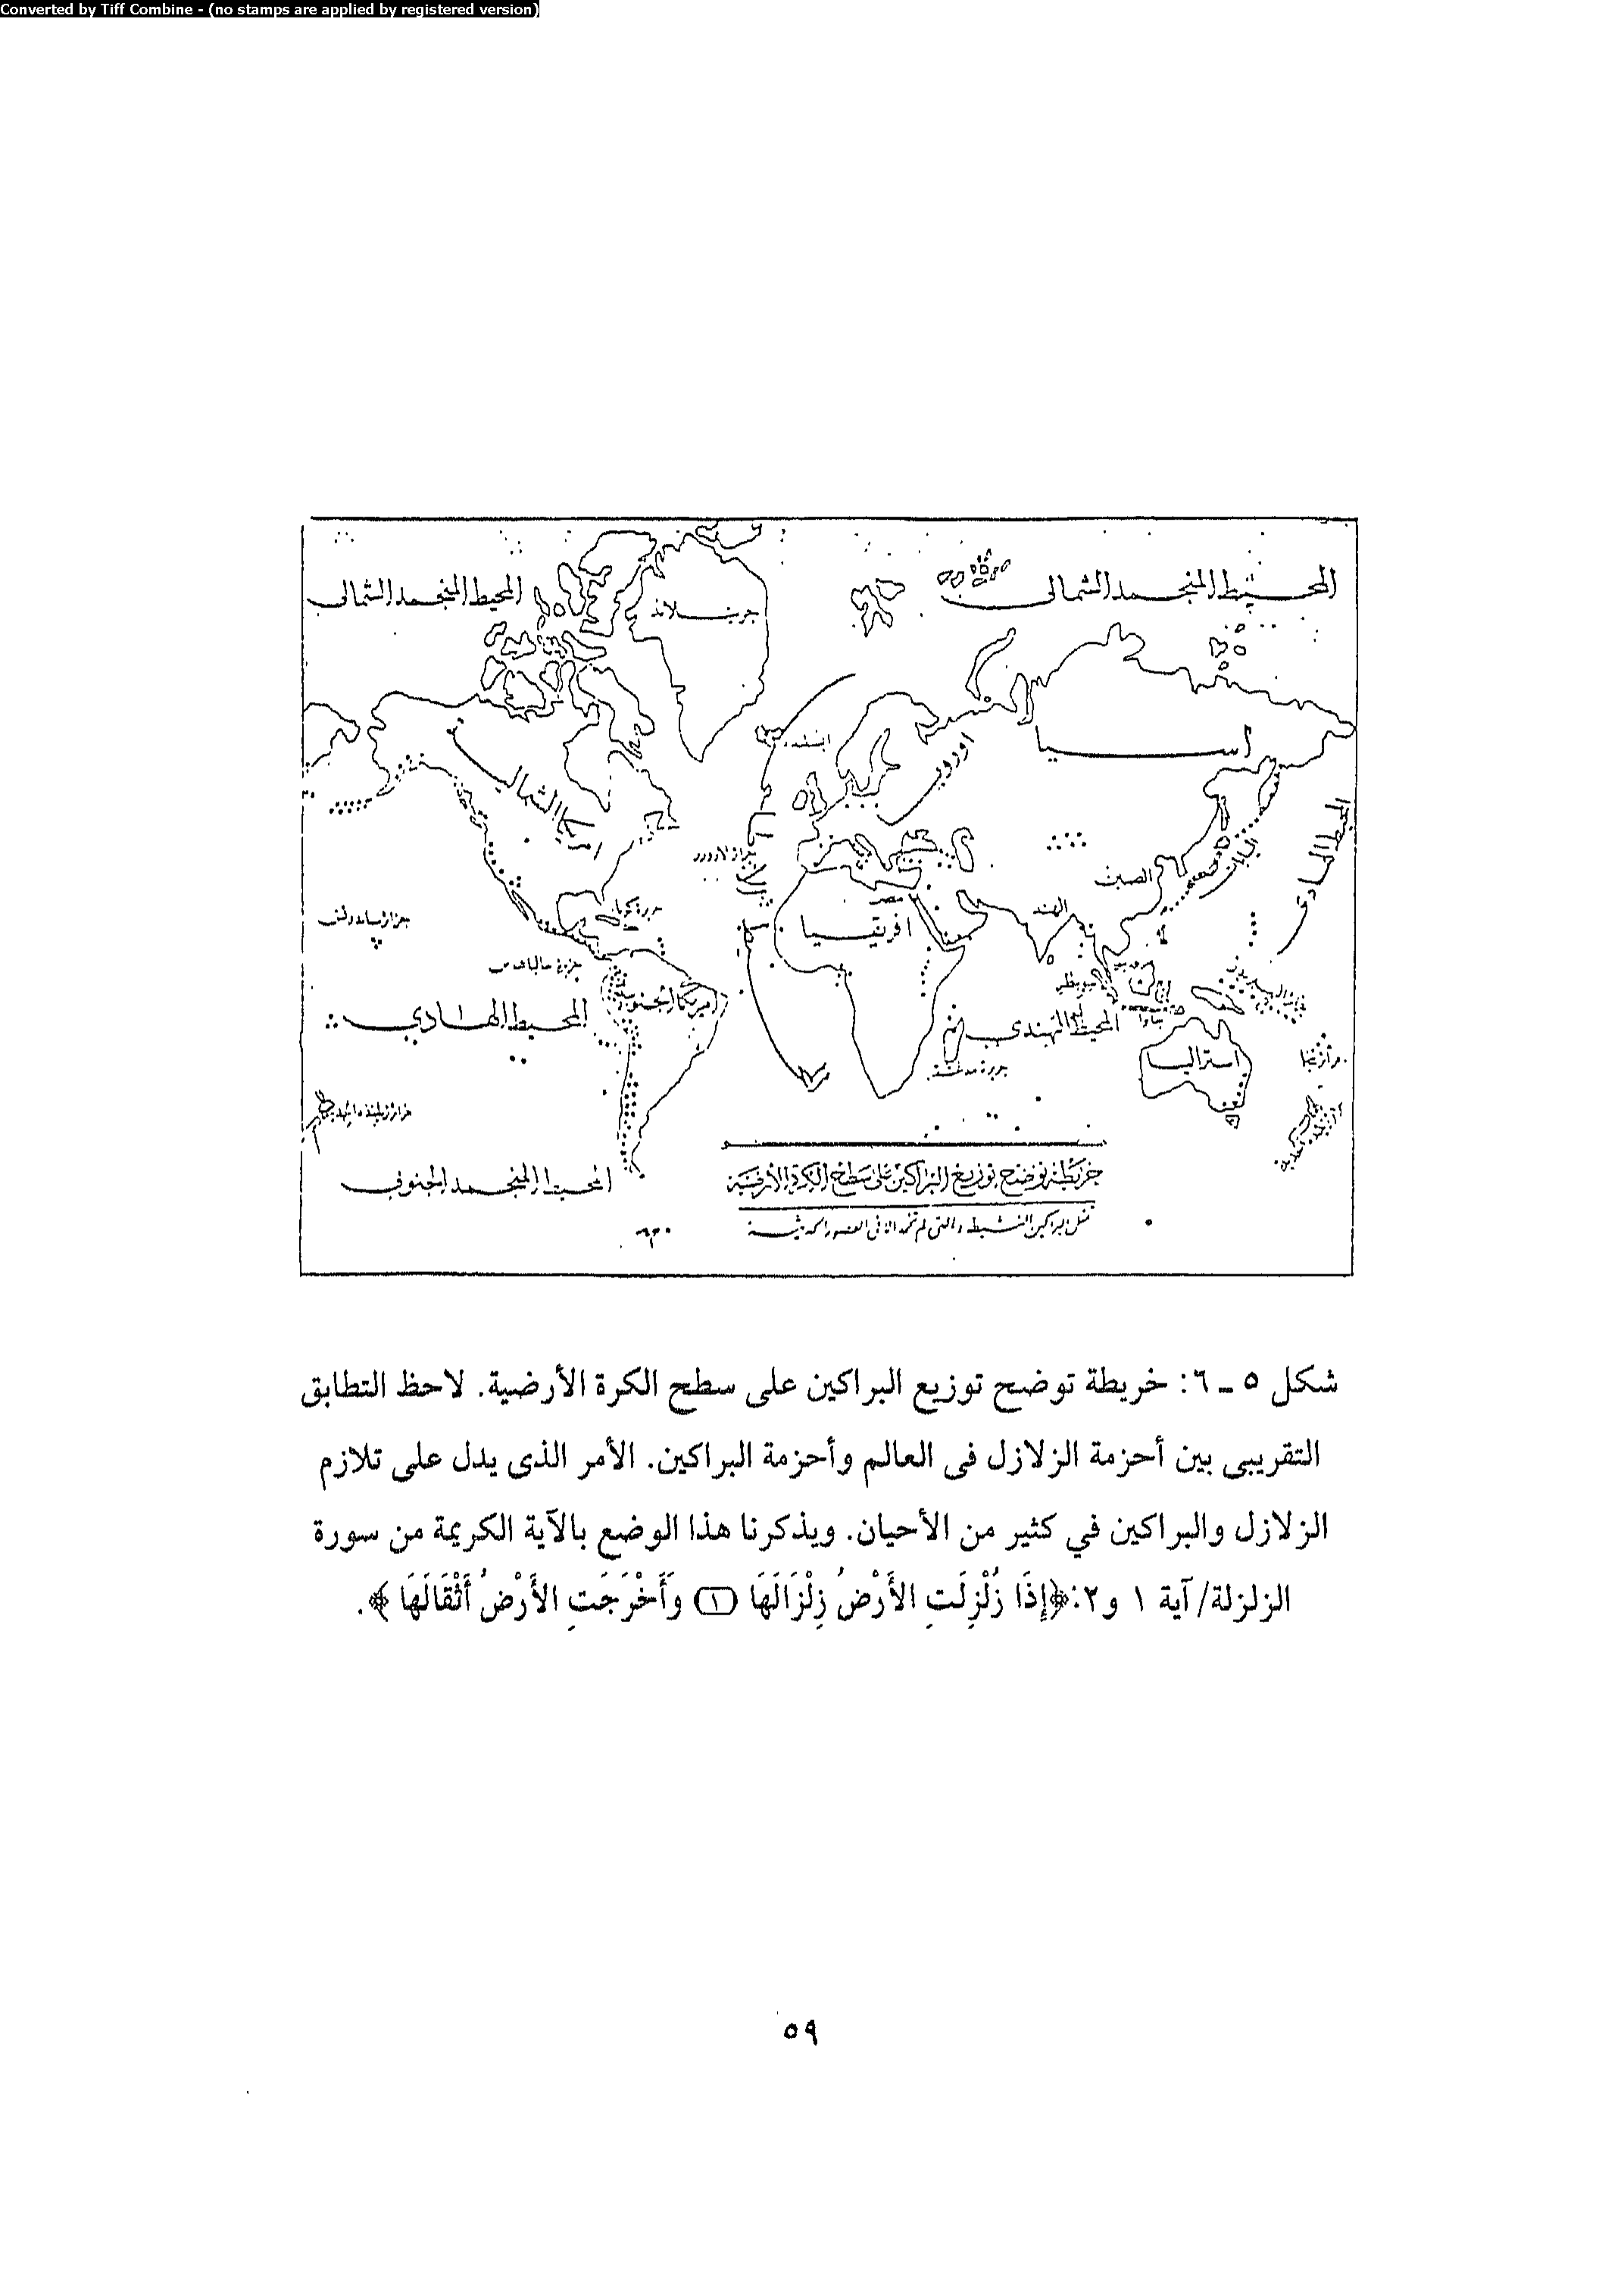 Converted by Tiff Combine - (no stamps are applied by registered version)
المحيط المنجمد الشمالى
المحيط المنجمد الشمالى
جرينلاند
اوروبا
آسيا
امريكا الشمالية
المحيط الهادى
اليابان
الصين
الهند
مصر
افريقيا
جزيرة كوبا
امريكا الجنوبية
المحيط الهادي
المحيط الهندي
استراليا
المحيط المنجمد الجنوبى
خريطة توضح توزيع البراكين على سطح الكرة الأرضية
شكل ٥ ـ ٦: خريطة توضح توزيع البراكين على سطح الكرة الأرضية. لاحظ التطابق
التقريبى بين أحزمة الزلازل فى العالم وأحزمة البراكين. الأمر الذى يدل على تلازم
الزلازل والبراكين في كثير من الأحيان. ويذكرنا هذا الوضع بالآية الكريمة من سورة
الزلزلة/ آية ١ و٢: ﴿إِذَا زُلْزِلَتِ الأَرْضُ زِلْزَالَهَا (١) وَأَخْرَجَتِ الأَرْضُ أَثْقَالَهَا﴾.
٥٩